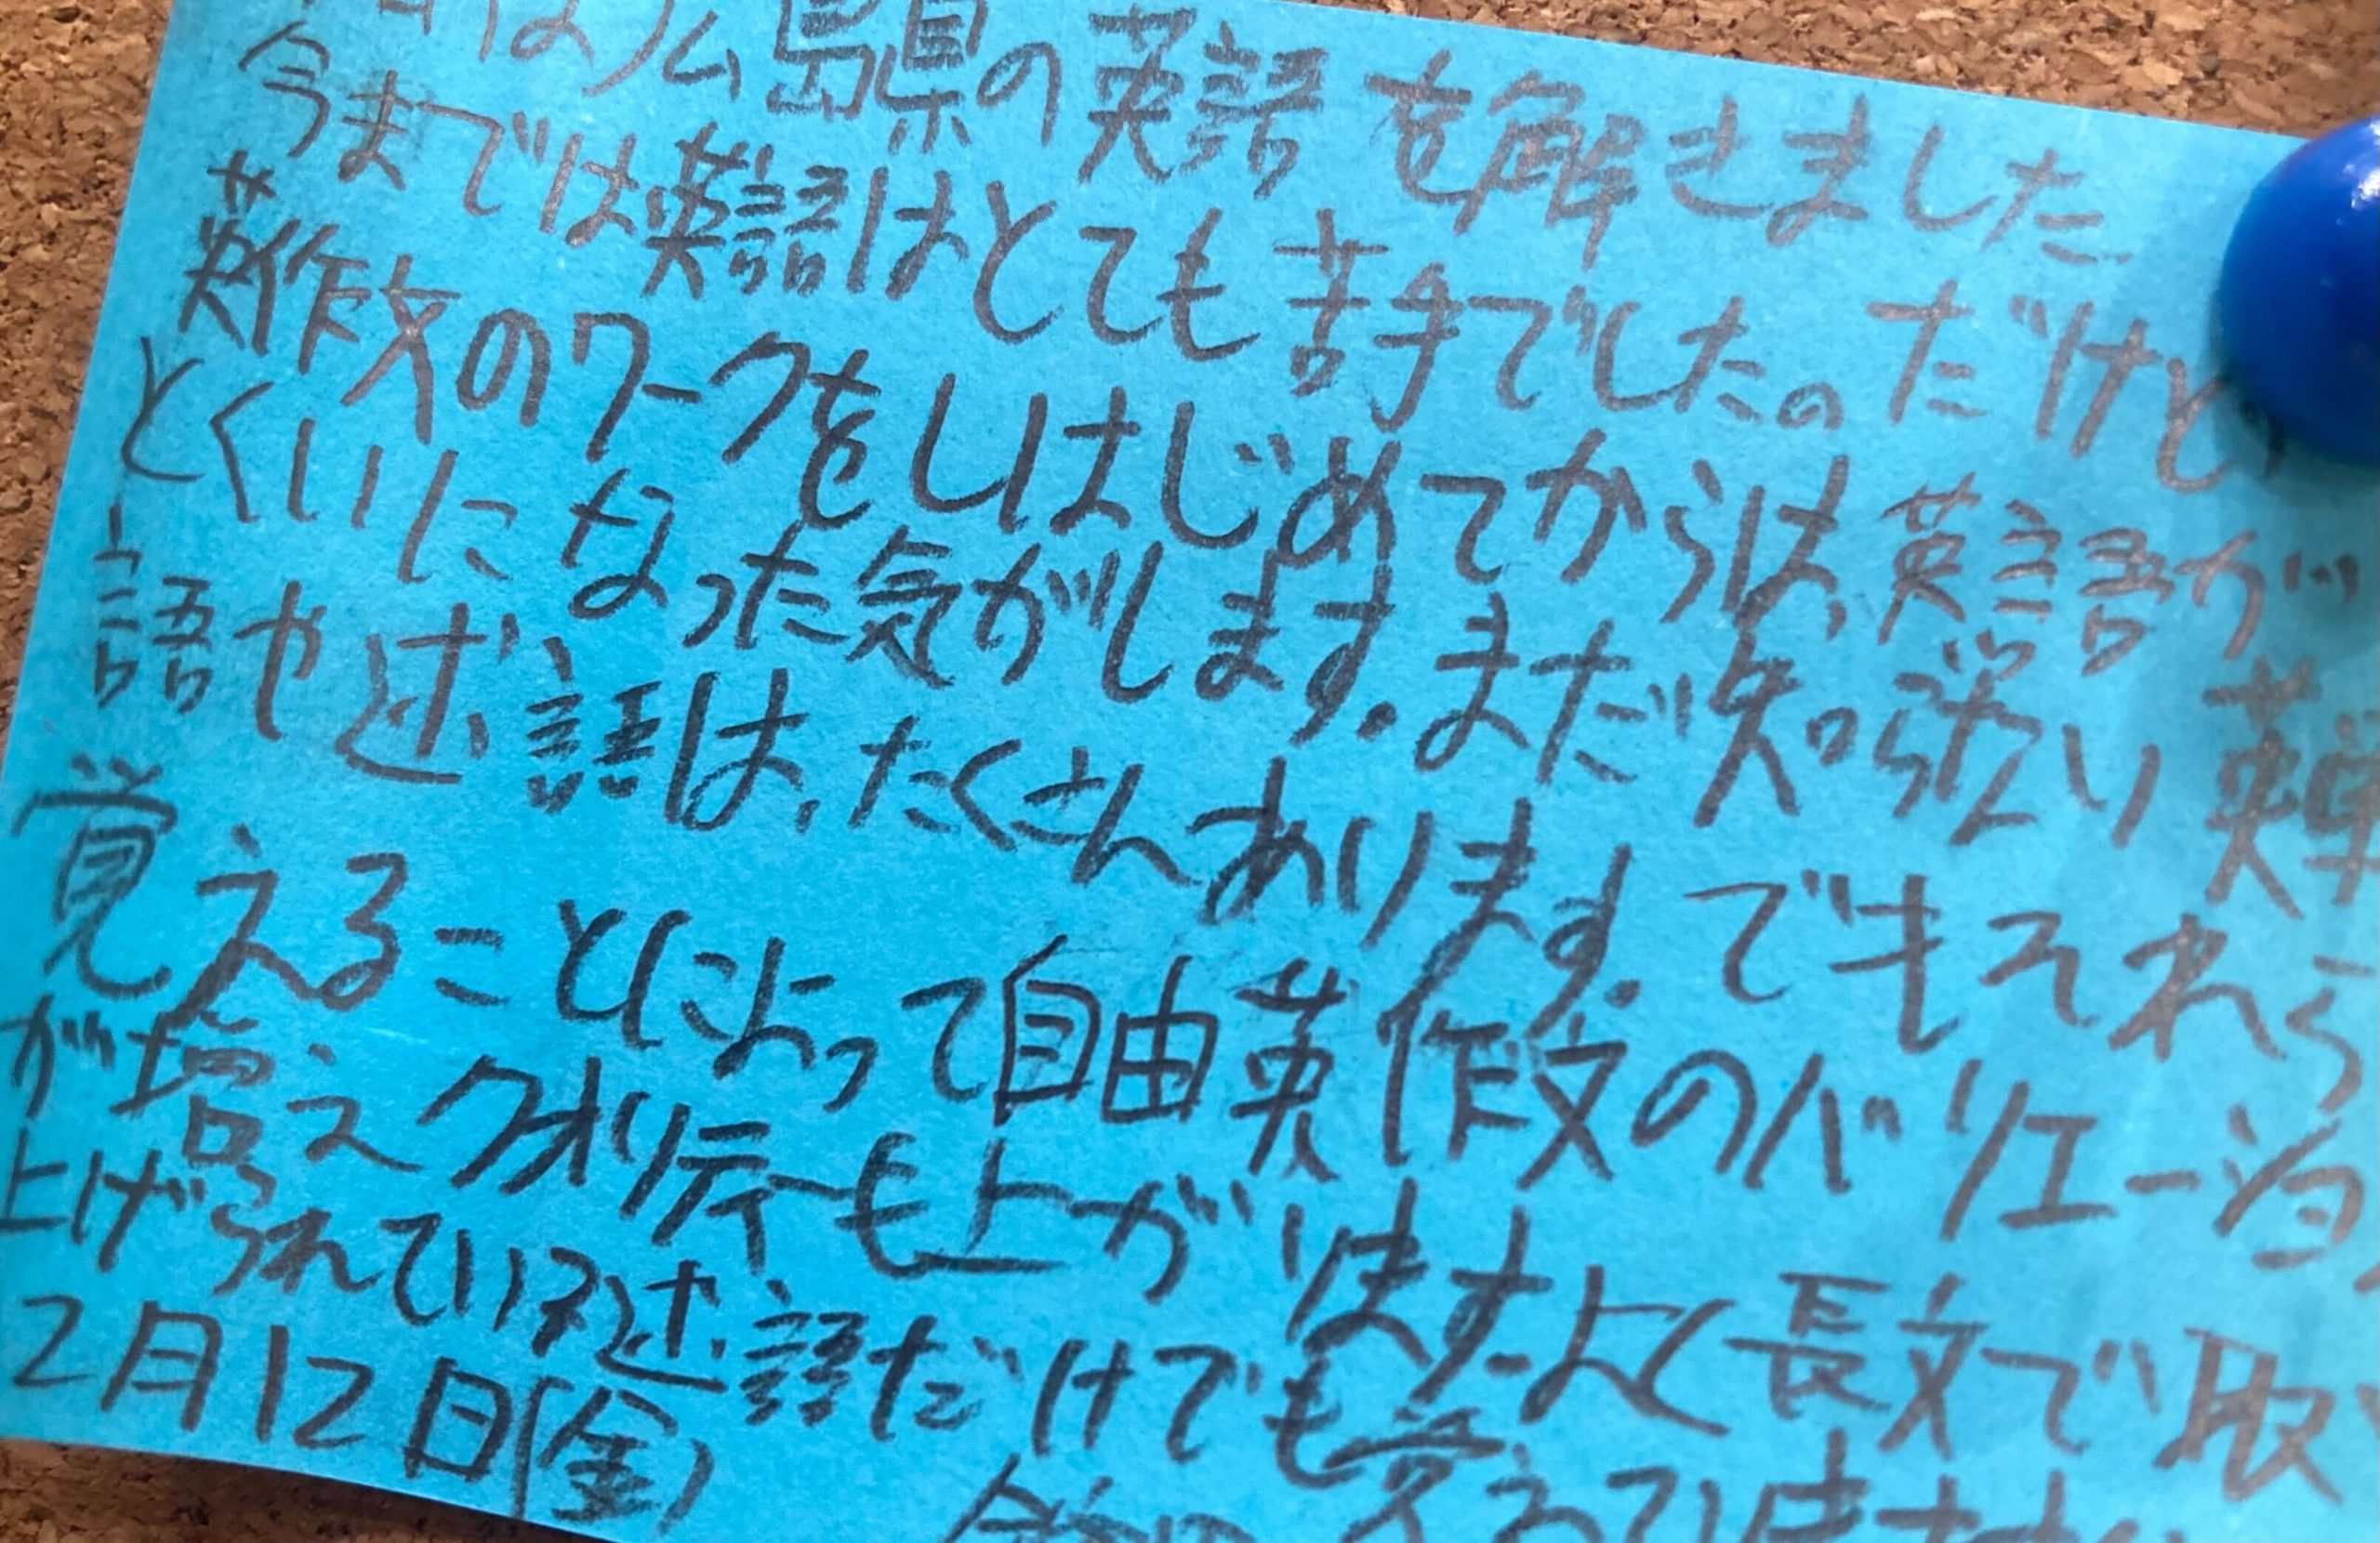 日は広島県の英語を解きました
今までは英語はとても苦手でした。だけど
英作文のワークをしはじめてからは、英語が
とくいになった気がします。まだ知らない英単
語や述語は、たくさんあります。でもそれら
覚えることによって自由英作文のバリエーショ
が増えクオリティーも上がります。よく長文で取
上げられている述語だけでも覚えていきたい
2月12日(金)